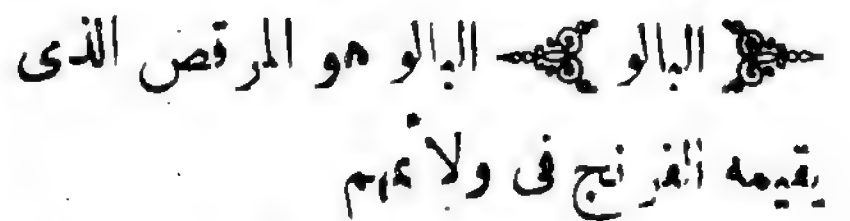 ﴿ البالو ﴾ البالو هو المرقص الذى
يقيمه الفرنج فى ولائمهم